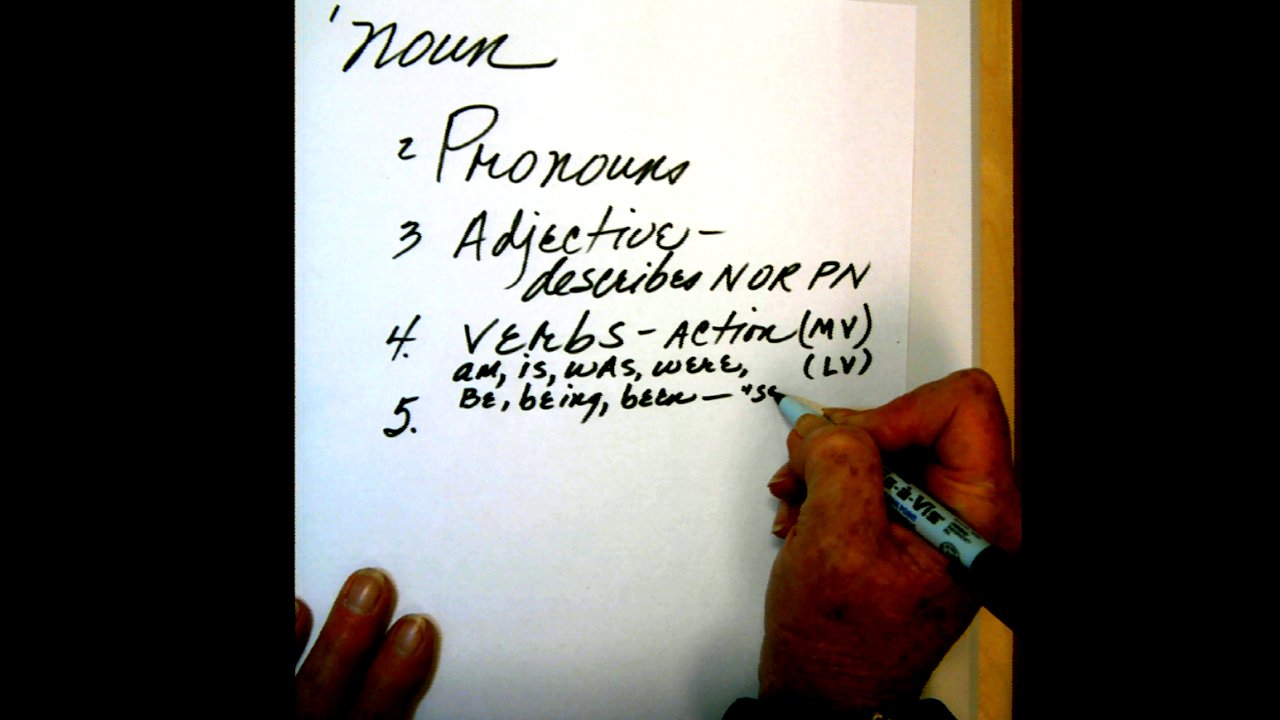 1 Noun
2 Pronouns
3 Adjective-
describes N OR PN
4. Verbs - Action (MV)
am, is, was, were, (LV)
Be, being, been — "se
5.
s-à-Vis